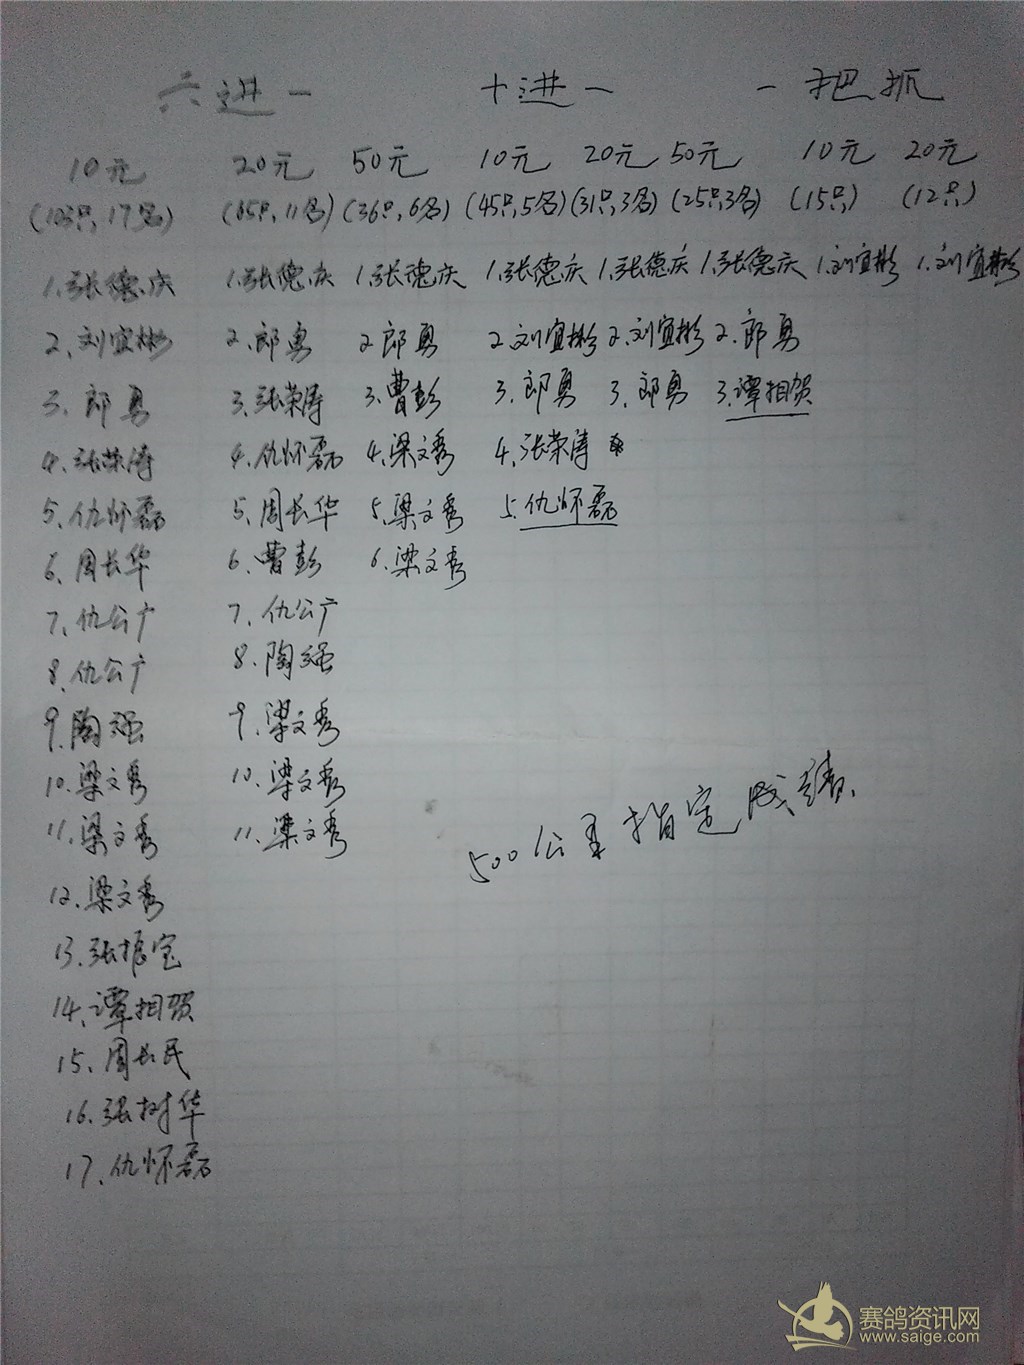 六进一 十进一 一把抓
10元 20元 50元 10元 20元 50元 10元 20元
(103只,17名) (65只,11名) (36只,6名) (45只,5名) (31只,3名) (25只3名) (15只) (12只)
1.张德庆 1.张德庆 1.张德庆 1.张德庆 1.张德庆 1.张德庆 1.刘宜彬 1.刘宜彬
2、刘宜彬 2.郎勇 2郎勇 2.刘宜彬 2.刘宜彬 2.郎勇
3、郎勇 3.张荣涛 3.曹彭 3.郎勇 3.郎勇 3.谭相贺
4.张荣涛 4.仇怀磊 4.梁文秀 4.张荣涛
5、仇怀磊 5.周长华 5.梁文秀 5.仇怀磊
6、周长华 6.曹彭 6.梁文秀
7、仇公广 7、仇公广
8、仇公广 8.陶强
9.陶强 9.梁文秀
10.梁文秀 10.梁文秀
11.梁文秀 11.梁文秀
12.梁文秀
13.张振宝
14.谭相贺
15、周长民
16.张树华
17.仇怀磊
500公里指定成绩.
赛鸽资讯网
www.saige.com